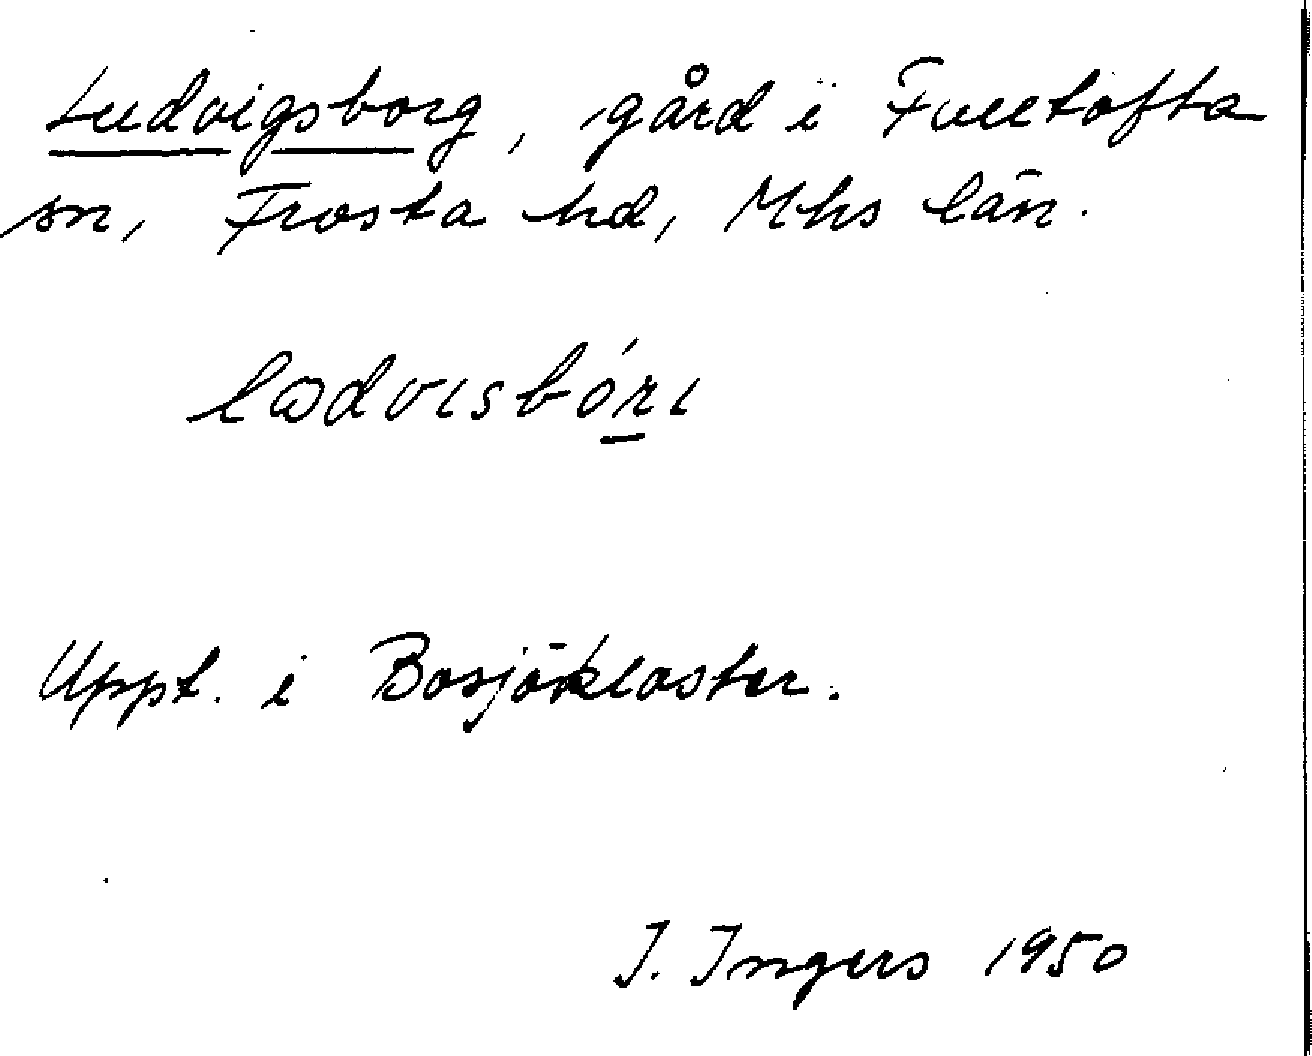 Ludvigsborg, gård i Fulltofta
sn, Frosta hd, Mhs län.
Uppt. i Bosjökloster.
I. Ingers 1950